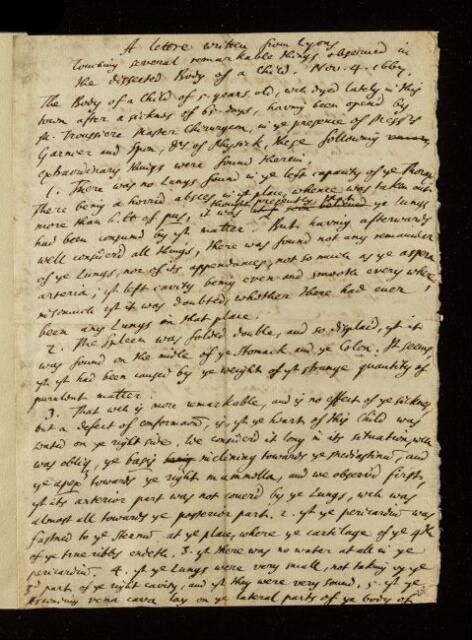 A lettre written from Lyons
touching several remarkable things observed in
the dissected Body of a Child. Nov. 4. 1667.
The Body of a Child of 5 years old, wch dyed lately in this
town after a sicknes of 65 days, having been opend by
Mr. Troussiere Master Chirurgeon, in ye presence of
Garnier and Spon, drs of Physick, these following
extraordinary things were found therein.
1. There was no Lungs found in ye left capacity of ye Thorax
There being a horrid absces in yt place, whence was taken out
more than 6. lb of pus, it was thought presently yt ye lungs
had been consumd by yt matter. But having afterwards
well considerd all things, there was found not any remainder
of ye Lungs, nor of its appendances, not so much as ye aspera
arteria; yt left cavity being even and smooth every where,
insomuch yt it was doubted, whether there had ever
been any Lungs in that place.
2. The spleen was folded double, and so displaced, yt it
was found in the midle of ye Stomack and ye Colon. It seems,
yt yt had been caused by ye weight of yt strange quantity of
purulent matter.
3. That wch is more remarkable, and is no effect of ye sicknes,
but a defect of conformaon, is, yt ye heart of this Child was
seated on ye right side. We considerd it long in its situation, wch
was obliq, ye basis inclining towards ye Mediastinu, and
ye apex towards ye right mammella, and we observd first,
yt its anterior part was not coverd by ye Lungs, wch was
almost all towards ye posterior part. 2. yt ye pericardiu was
fastned to ye Sternu at ye place, where ye cartilage of ye 4th
of ye true ribbs endeth. 3. yt there was no water at all in ye
pericardiu. 4. yt ye Lungs were very small, not taking up ye
3d part of ye right cavity, and yt they were very sound. 5. yt ye
Ascending vena cava lay on ye lateral parts of ye body of